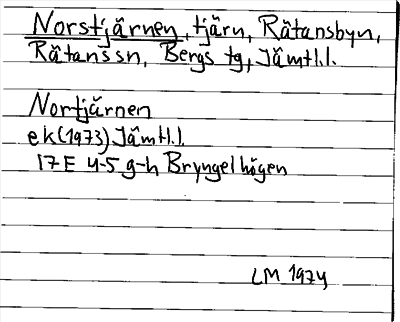 Norstjärnen, tjärn, Rätansbyn,
Rätans sn, Bergs tg, Jämtl.l.
Nortjärnen
ek(1973) Jämtl.l.
17E 4-5 g-h Bryngelhögen
LM 1974